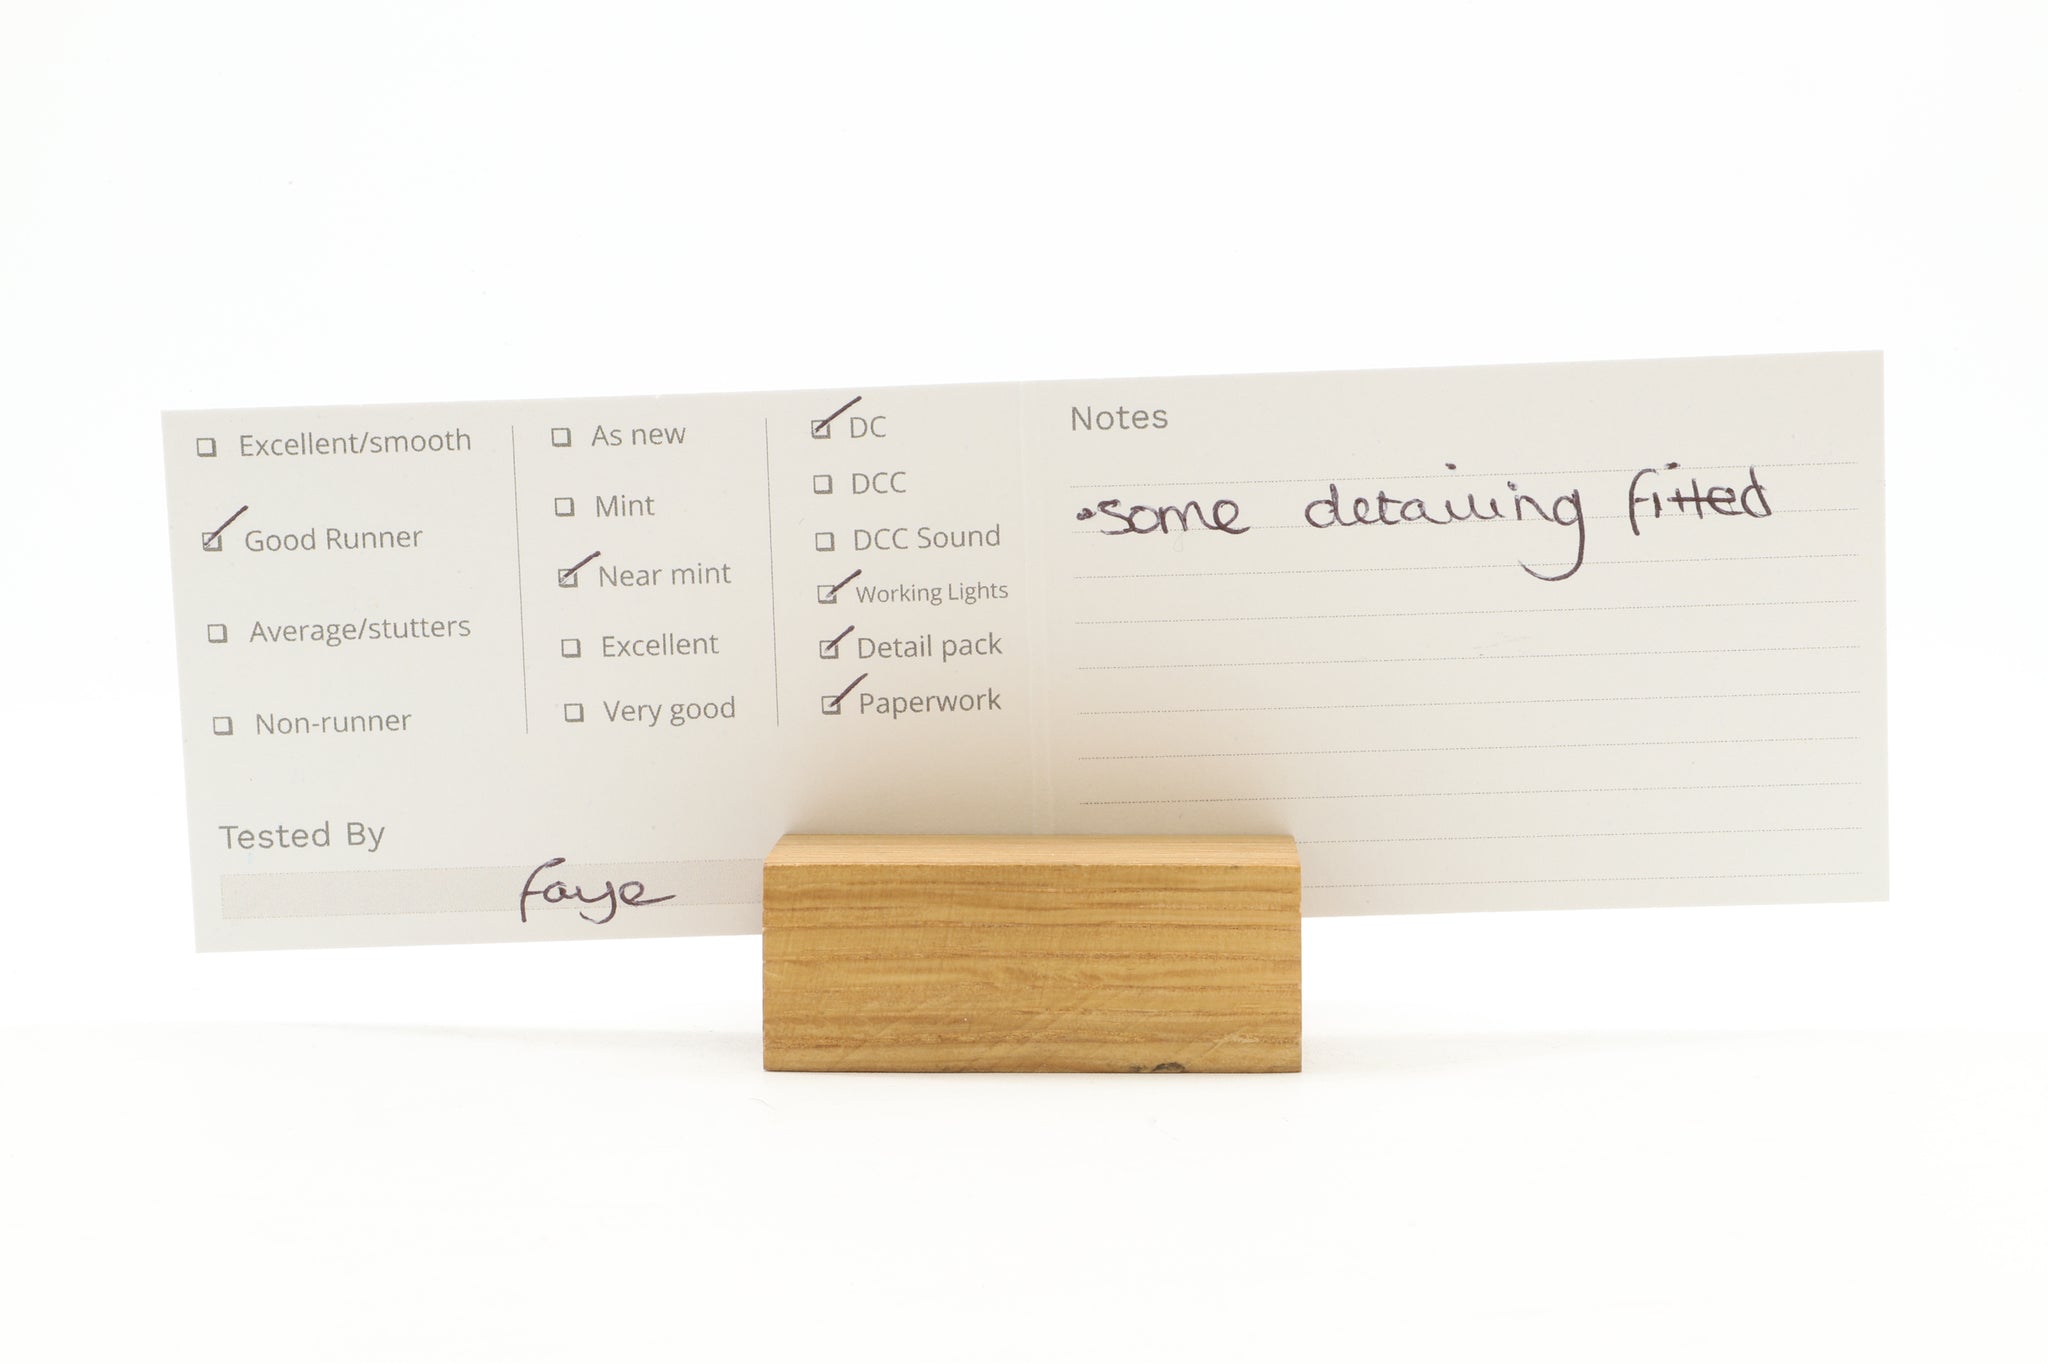 Excellent/smooth
Good Runner
Average/stutters
Non-runner
As new
Mint
Near mint
Excellent
Very good
DC
DCC
DCC Sound
Working Lights
Detail pack
Paperwork
Tested By
faye
Notes
•some detailing fitted